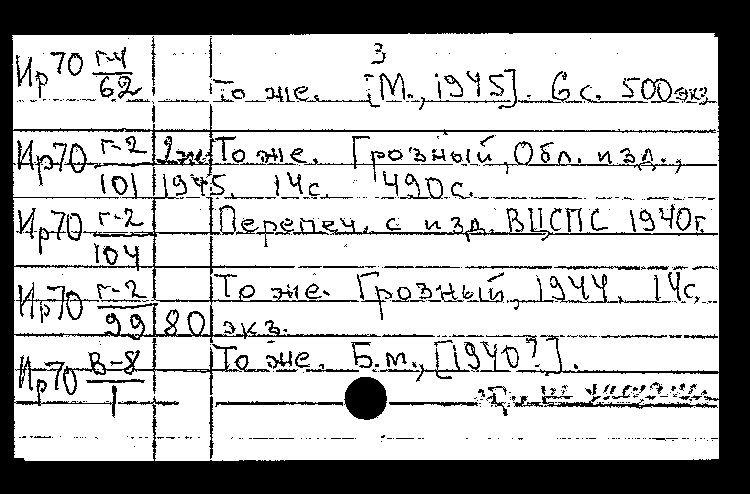 3
Ир 70 г-4/62 То же. [М., 1945]. 6 с. 500 экз
Ир 70 г-2/101 2 эк То же. Грозный, Обл. изд.,
1945. 14 с. 490 с.
Ир 70 г-2/104 Перепеч. с изд. ВЦСПС 1940 г.
Ир 70 г-2/99 То же. Грозный, 1944. 14 с.
80 экз.
Ир 70 В-8/1 То же. Б.м., [1940?].